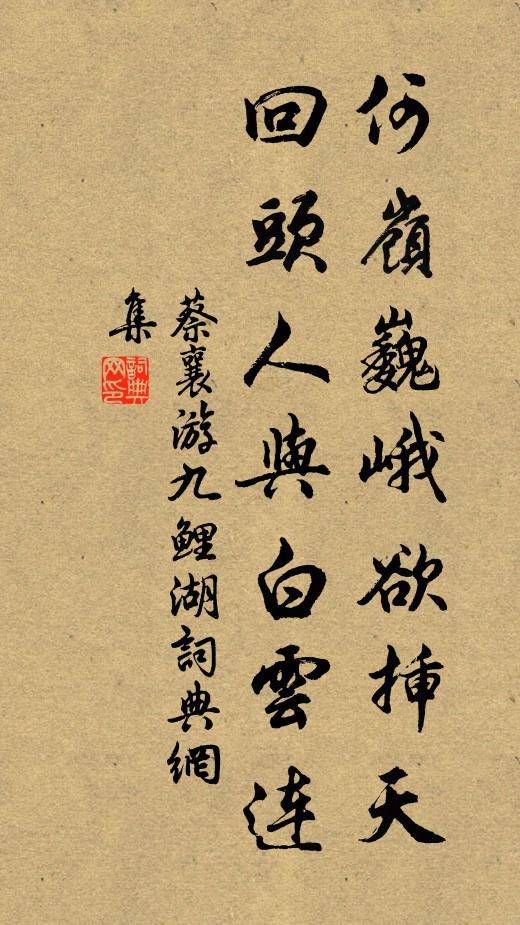 何嶺巍峨欲挿天
回頭人與白雲連
蔡襄游九鯉湖詞典網
集
詞典
网印